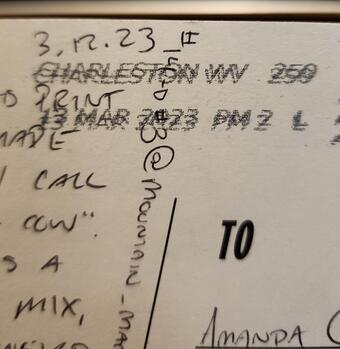 3.12.23
CHARLESTON WV 250
13 MAR 2023 PM 2 L
PRINT
MADE
CALL
COW".
S A
MIX,
@MOUNTAIN_MA
TO
AMANDA